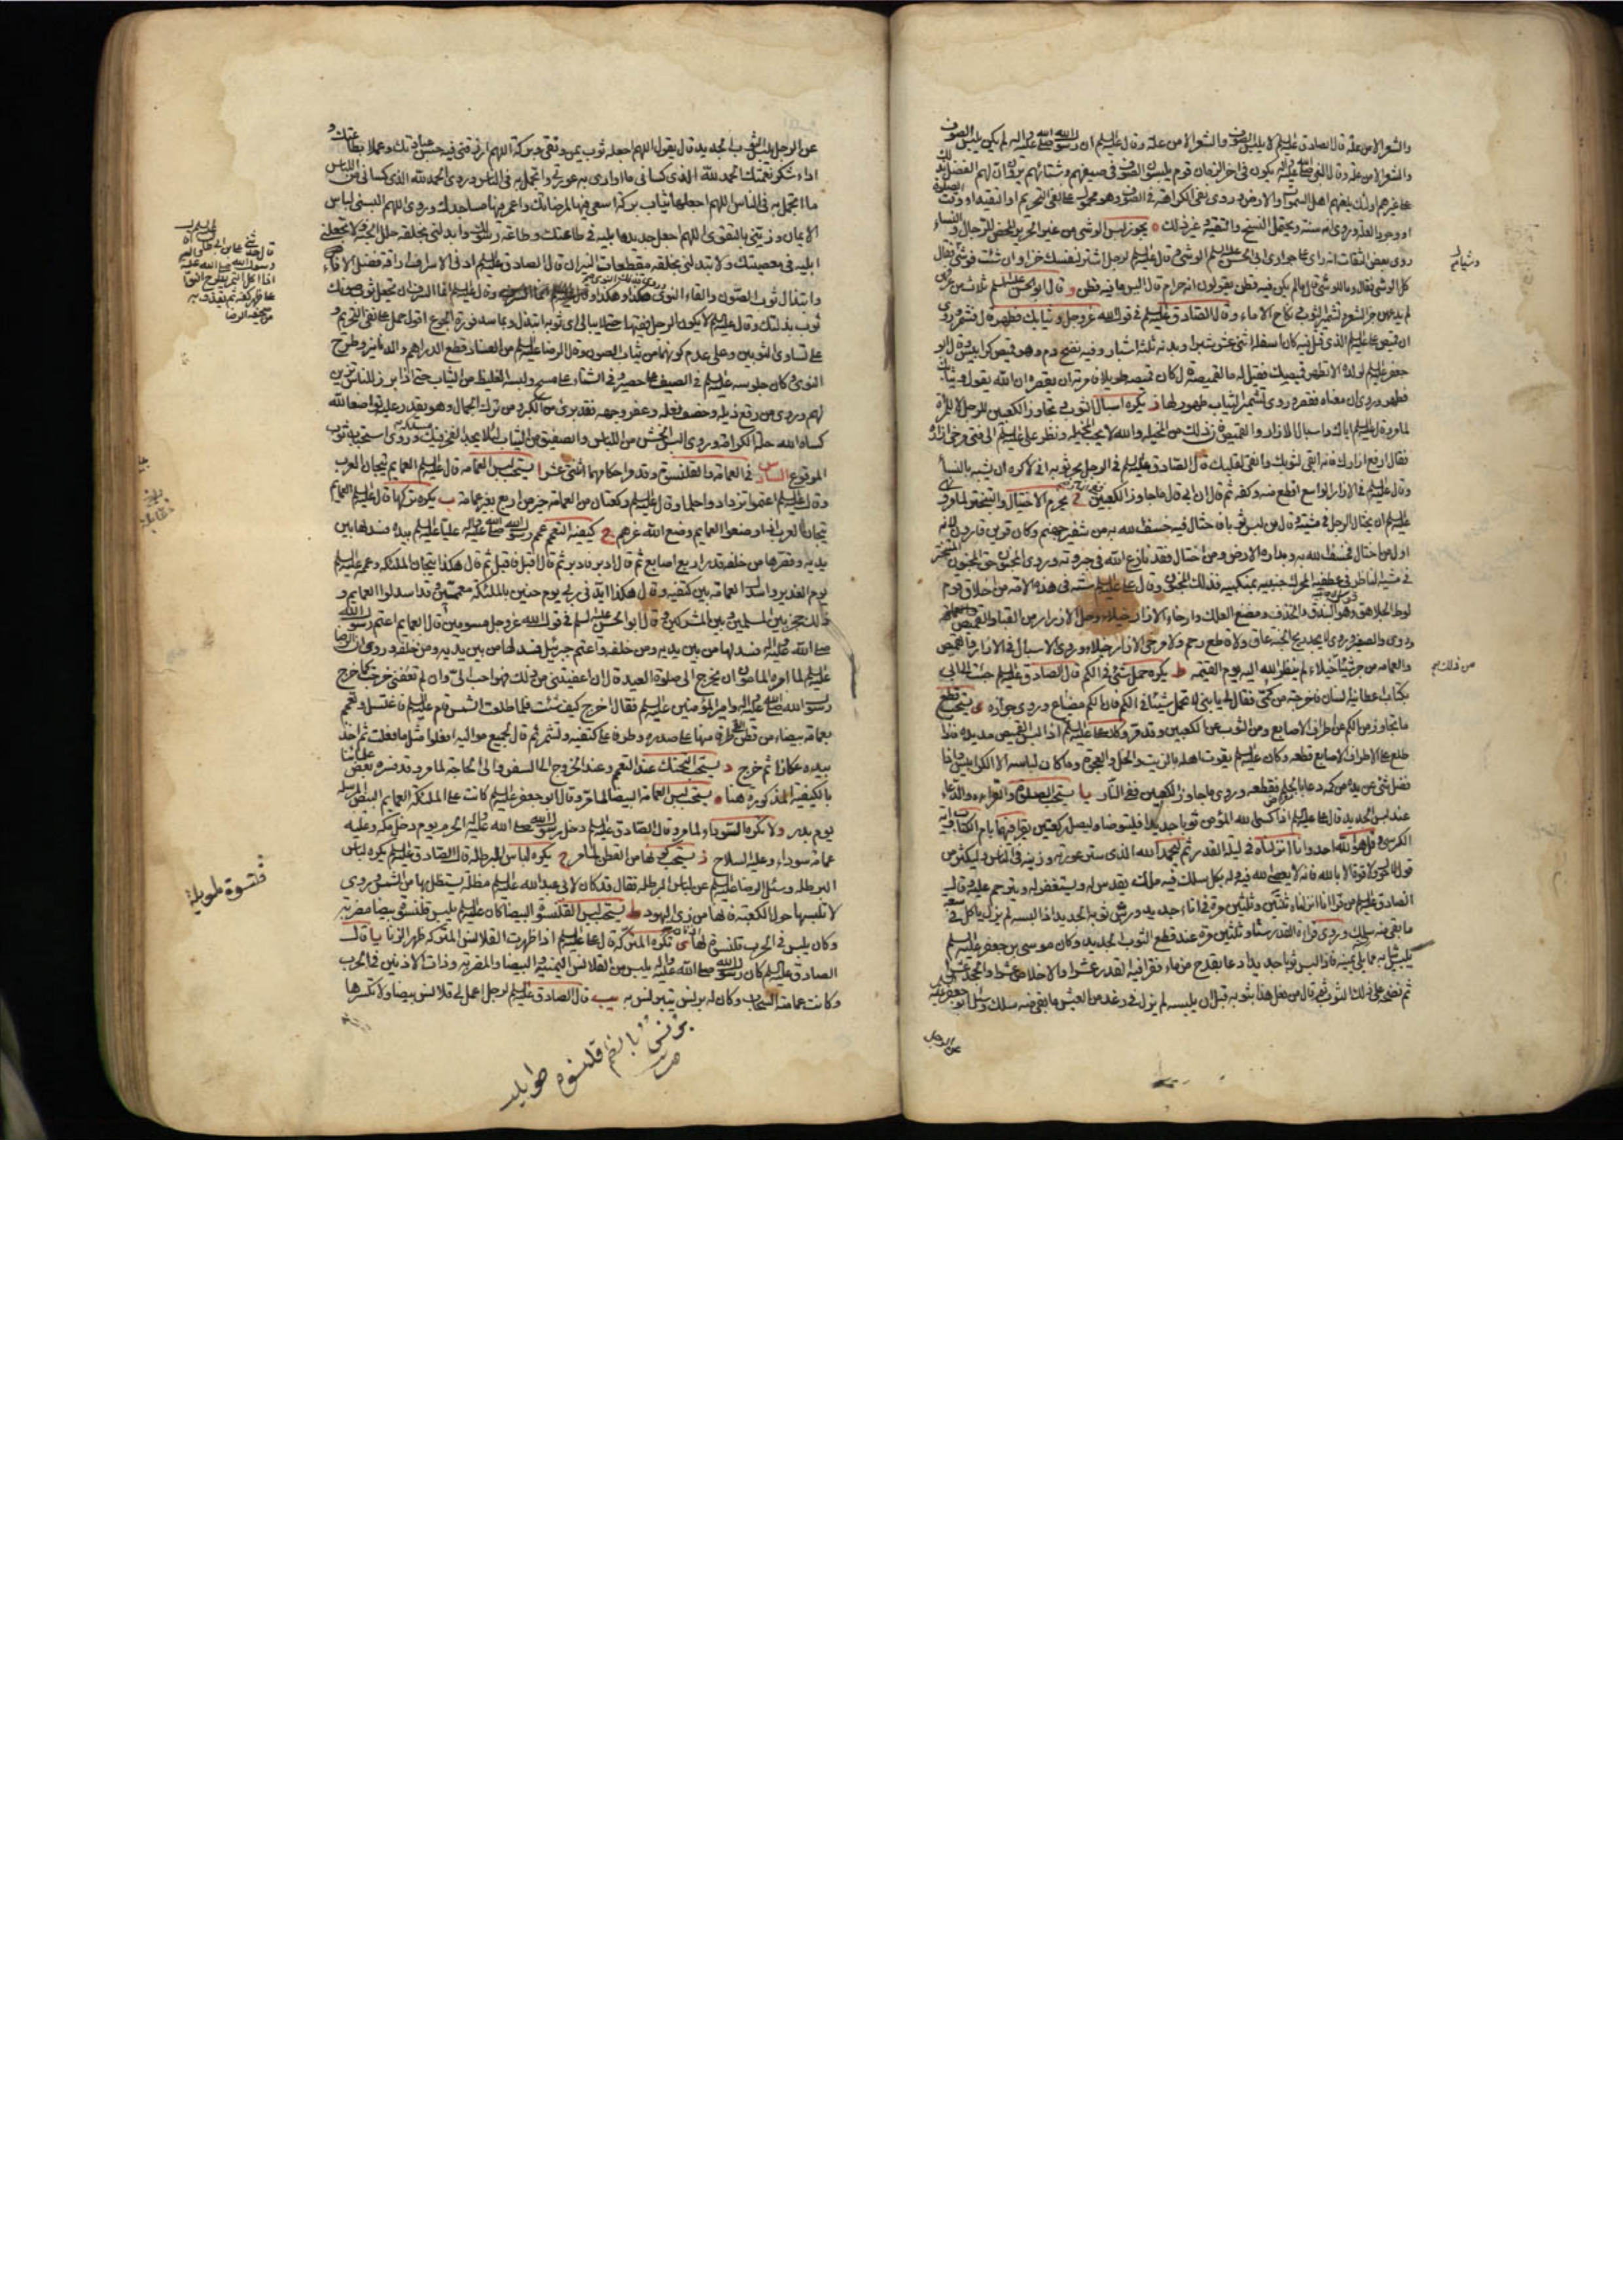 والشعر الا من علة قال الصادق عليه السلام لا يلبس الصوف والشعر الا من علة وقال عليه السلام ان رسول الله صلى الله عليه واله لم يكن يلبس الصوف
والشعر الا من علة وقال النبي صلى الله عليه واله يكون في اخر الزمان قوم يلبسون الصوف في صيفهم وشتائهم يرون ان لهم الفضل بذلك
على غيرهم اولئك يلعنهم اهل السموات والارض وروى نفى الكراهة في الصوف وهو محمول على نفى التحريم او التقية او وقت الصلوة
او وجود العذر وروى انه سنة ويحتمل النسخ والتقية وغير ذلك ه يجوز لبس الوشى من غير الحرير المحض للرجال والنساء
روى بعض الثقات انه راى على جوارى ابى الحسن عليه السلام الوشى وقال عليه السلام لرجل اشتر لنفسك خزا وان شئت فوشى فقال
كل الوشى فقال وما الوشى قال ما لم يكن فيه قطن يقولون انه حرام قال البس ما فيه قطن و قال ابو الحسن عليه السلام ثلاث من عرفهن
لم يدعهن جز الشعر وتشمير الثوب ونكاح الاماء وقال الصادق عليه السلام في قول الله عز وجل وثيابك فطهر قال فشمر وروى
ان قميص على عليه السلام الذي قتل فيه كان اسفله اثنى عشر شبرا وبدنه ثلثة اشبار وفيه نضح دم وهو قميص كرابيس وقال ابو
جعفر عليه السلام لولده الا تطهر قميصك فقيل له ما لقميصه قال كان قميصه طويلا فامرته ان يقصره ان الله يقول وثيابك
فطهر وروى ان معناه فقصر وروى تشمير الثياب طهور لها ز يكره اسبال الثوب وتجاوز الكعبين للرجل لا للمرأة
لما مر وقال عليه السلام اياك واسبال الازار والقميص فان ذلك من المخيلة والله لا يحب المخيلة ونظر على عليه السلام الى فتى مرخى ازاره
فقال ارفع ازارك فانه ابقى لثوبك وانقى لقلبك قال الصادق عليه السلام في الرجل يجر ثوبه انى لاكره ان يتشبه بالنساء
وقال عليه السلام في الازار الواسع اقطع منه وكفه ثم قال ان ابى قال ما جاوز الكعبين ففي النار ح يحرم الاختيال والتبختر لما مر وروى
عليه السلام ان يختال الرجل في مشيته وقال من لبس ثوبا فاختال فيه خسف الله به من شفير جهنم وكان قرين قارون لانه
اول من اختال فخسف الله به وبداره الارض ومن اختال فقد نازع الله في جبروته وروى المجنون حق المجنون المتبختر
في مشيه الناظر في عطفيه المحرك جنبيه بمنكبيه فذلك المجنون وقال على عليه السلام ستة في هذه الامة من اخلاق قوم
لوط الجلاهق وهو البندق والخذف ومضغ العلك وارخاء الازار خيلاء وحل الازرار من القباء والقميص
وروى والصفير وروى لا يجد ريح الجنة عاق ولا قاطع رحم ولا مرخى الازار خيلاء وروى الاسبال في الازار والقميص
والعمامة من جر شيئا خيلاء لم ينظر الله اليه يوم القيمة ط يكره حمل شئ في الكم قال الصادق عليه السلام جئت الى ابى
بكتاب اعطانيه انسان فاخرجته من كمى فقال لى يا بنى لا تحمل شيئا في الكم فان الكم مضياع وروى جوازه ى يستحب قطع
ما تجاوز من الكم عن اطراف الاصابع ومن الثوب عن الكعبين وقد مر وكان على عليه السلام اذا لبس القميص مد يده فاذا
طلع على اطراف الاصابع قطعه وكان عليه السلام يقوت اهله بالزيت والخل والعجوة وما كان لباسه الا الكرابيس واذا
فضل شئ عن يده من كمه دعا بالجلم فقطعه وروى ما جاوز الكعبين ففي النار يا يستحب الصلوة والقراءة والدعاء
عند لبس الجديد قال على عليه السلام اذا كسى الله المؤمن ثوبا جديدا فليتوضا وليصل ركعتين يقرا فيهما بام الكتاب واية
الكرسى وقل هو الله احد وانا انزلناه في ليلة القدر ثم ليحمد الله الذي ستر عورته وزينه في الناس وليكثر من
قول لا حول ولا قوة الا بالله فانه لا يعصى الله فيه وله بكل سلك فيه ملك يقدس له ويستغفر له ويترحم عليه وقال
الصادق عليه السلام من قرا انا انزلناه ثنتين وثلثين مرة في اناء جديد ورش ثوبه الجديد اذا لبسه لم يزل ياكل في سعة
ما بقى منه سلك وروى قراءة القدر ستا وثلثين مرة عند قطع الثوب الجديد وكان موسى بن جعفر عليه السلام
يلبس ثيابه مما يلى يمينه فاذا لبس ثوبا جديدا دعا بقدح من ماء فقرا فيه القدر عشرا والاخلاص عشرا والجحد عشرا
ثم نضحه على ذلك الثوب ثم قال من فعل هذا بثوبه قبل ان يلبسه لم يزل في رغد من العيش ما بقى منه سلك وسئل ابو جعفر عليه السلام
عن الرجل
عن الرجل يلبس الثوب الجديد قال يقول اللهم اجعله ثوب يمن وتقى وبركة اللهم ارزقنى فيه حسن عبادتك وعملا بطاعتك و
اداء شكر نعمتك الحمد لله الذي كسانى ما اوارى به عورتى واتجمل به في الناس وروى الحمد لله الذي كسانى من اللباس
ما اتجمل به في الناس اللهم اجعلها ثياب بركة اسعى فيها لمرضاتك واعمر فيها مساجدك وروى اللهم البسنى لباس
الايمان وزينى بالتقوى اللهم اجعل جديده ابليه في طاعتك وطاعة رسولك وابدلنى بخلقه حلل الجنة ولا تجعلنى
ابليه في معصيتك ولا تبدلنى بخلقه مقطعات النيران قال الصادق عليه السلام ادنى الاسراف اراقة فضل الاناء
وابتذال ثوب الصون والقاء النوى وقال عليه السلام انما السرف ان تجعل ثوب صونك
ثوب بذلتك وقال عليه السلام لا يكون الرجل فقيها حتى لا يبالى اى ثوبيه ابتذل وبما سد فورة الجوع اقول حمل على نفى التحريم و
على تساوى الثوبين وعلى عدم كونهما من ثياب الصون وقال الرضا عليه السلام من الفساد قطع الدراهم والدنانير وطرح
النوى وكان جلوسه عليه السلام في الصيف على حصير وفي الشتاء على مسح ولبسه الغليظ من الثياب حتى اذا برز للناس تزين
لهم وروى من رقع ذيله وخصف نعله وعفر وجهه فقد برئ من الكبر ومن ترك الجمال وهو يقدر عليه تواضعا لله
كساه الله حلة الكرامة وروى البس الخشن من اللباس والصفيق من الثياب لئلا يجد الفخر فيك
المرقوع السادس في العمامة والقلنسوة وقد مر احكامهما اثنى عشر ا يستحب لبس العمامة قال عليه السلام العمايم تيجان العرب
وقال عليه السلام اعتموا تزدادوا حلما وقال عليه السلام ركعتان مع العمامة خير من اربع بغير عمامة ب يكره تركها قال عليه السلام العمايم
تيجان العرب اذا وضعوا العمايم وضع الله عزهم ج كيفية التعمم عمم رسول الله صلى الله عليه واله عليا عليه السلام بيده فسدلها بين
يديه وقصرها من خلفه قدر اربع اصابع ثم قال ادبر فادبر ثم قال اقبل فاقبل ثم قال هكذا تيجان الملئكة وعمم عليا عليه السلام
يوم الغدير واسدل العمامة بين كتفيه وقال هكذا ايدنى ربى يوم حنين بالملئكة معممين قد اسدلوا العمايم و
ذلك حجز بين المسلمين وبين المشركين وقال ابو الحسن عليه السلم في قول الله عز وجل مسومين قال العمايم اعتم رسول الله
صلى الله عليه واله فسدلها من بين يديه ومن خلفه واعتم جبرئيل فسدلها من بين يديه ومن خلفه وروى ان الرضا
عليه السلام لما امره المامون ان يخرج الى صلوة العيد قال ان اعفيتنى من ذلك فهو احب الى وان لم تعفنى خرجت كما خرج
رسول الله صلى الله عليه واله وامير المؤمنين عليه السلام فقال اخرج كيف شئت فلما طلعت الشمس قام عليه السلام فاغتسل وتعمم
بعمامة بيضاء من قطن القى طرفا منها على صدره وطرفا على كتفيه وتشمر ثم قال لجميع مواليه افعلوا مثل ما فعلت ثم اخذ
بيده عكازا ثم خرج د يستحب التحنك عند التعمم وعند الخروج الى السفر والى الحاجة لما مر وقد فسره بعض علمائنا
بالكيفية المذكورة هنا ه يستحب لبس العمامة البيضا لما مر وقال ابو جعفر عليه السلام كانت على الملئكة العمايم البيض المرسلة
يوم بدر ولا تكره السوداء لما مر وقال الصادق عليه السلام دخل رسول الله صلى الله عليه واله الحرم يوم دخل مكة وعليه
عمامة سوداء وعليه السلاح ز يستحب كونها من القطن لما مر ح يكره لباس البرطلة قال الصادق عليه السلام يكره لباس
البرطلة وسئل الرضا عليه السلام عن لباس البرطلة فقال قد كان لابى عبد الله عليه السلام مظلة يستظل بها من الشمس وروى
لا تلبسها حول الكعبة فانها من زى اليهود ط يستحب لبس القلنسوة البيضا كان عليه السلام يلبس قلنسوة بيضا مضربة
وكان يلبس في الحرب قلنسوة لها اذنان ى تكره المتركة قال على عليه السلام اذا ظهرت القلانس المتركة ظهر الزنا يا قال
الصادق عليه السلام كان رسول الله صلى الله عليه واله يلبس من القلانس اليمنية والبيضا والمضربة وذات الاذنين في الحرب
وكانت عمامته السحاب وكان له برنس يتبرنس به يب قال الصادق عليه السلام لرجل اعمل لى قلانس بيضا ولا تكسرها
برنس بالضم قلنسوه طويله
قلنسوة طويلة